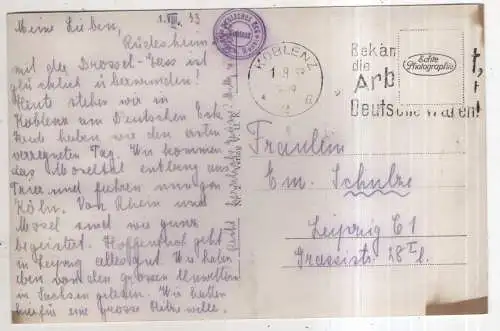 Meine Lieben,
1. VIII. 33
Rüdesheim
mit der Drossel-Gass ist
glücklich überwunden!
Heute stehen wir in
Koblenz am Deutschen Eck.
Heut haben wir den ersten
verregneten Tag. Wir kommen
das Moseltal entlang aus
Trier und fahren morgen
Köln. Von Rhein und
Mosel sind wir ganz
begeistert. Hoffentlich geht
in Leipzig alles gut. Wir haben
eben von den grossen Unwettern
in Sachsen gelesen. Wir hatten
hier für eine grosse Hitzewelle.
KOBLENZ
Bekäm
die
Arb
t,
Deutsche Waren!
Echte
Photographie
Fräulein
Em. Schulze
Leipzig C1
Grassistr. 28 I l.